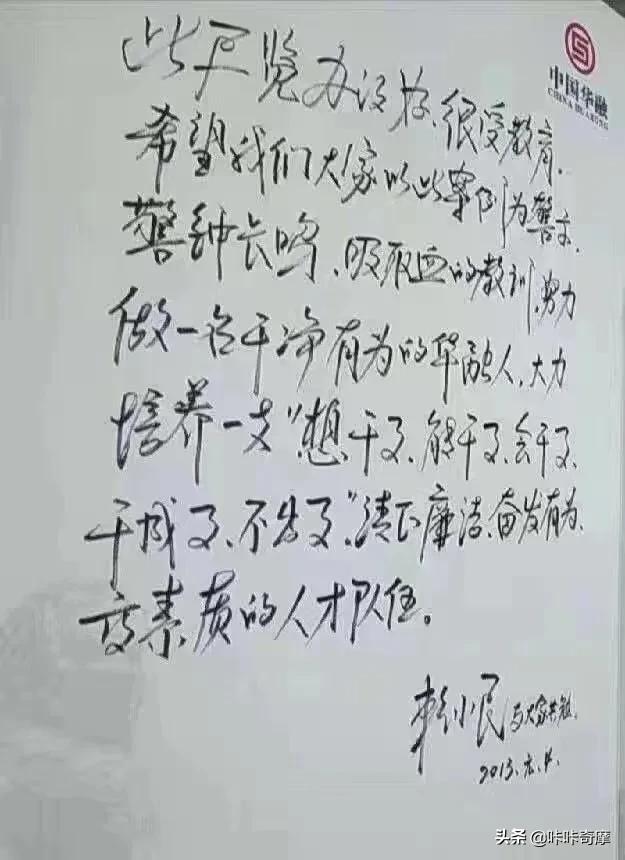 中国华融
CHINA HUARONG
此展览办得好、很受教育.
希望我们大家以此案例为警示、
警钟长鸣、吸取血的教训、努力
做一名干净有为的华融人,大力
培养一支"想干事、能干事、会干事、
干成事、不出事",清正廉洁、奋发有为、
高素质的人才队伍。
赖小民与大家共勉.
2013.
头条 @咔咔奇摩